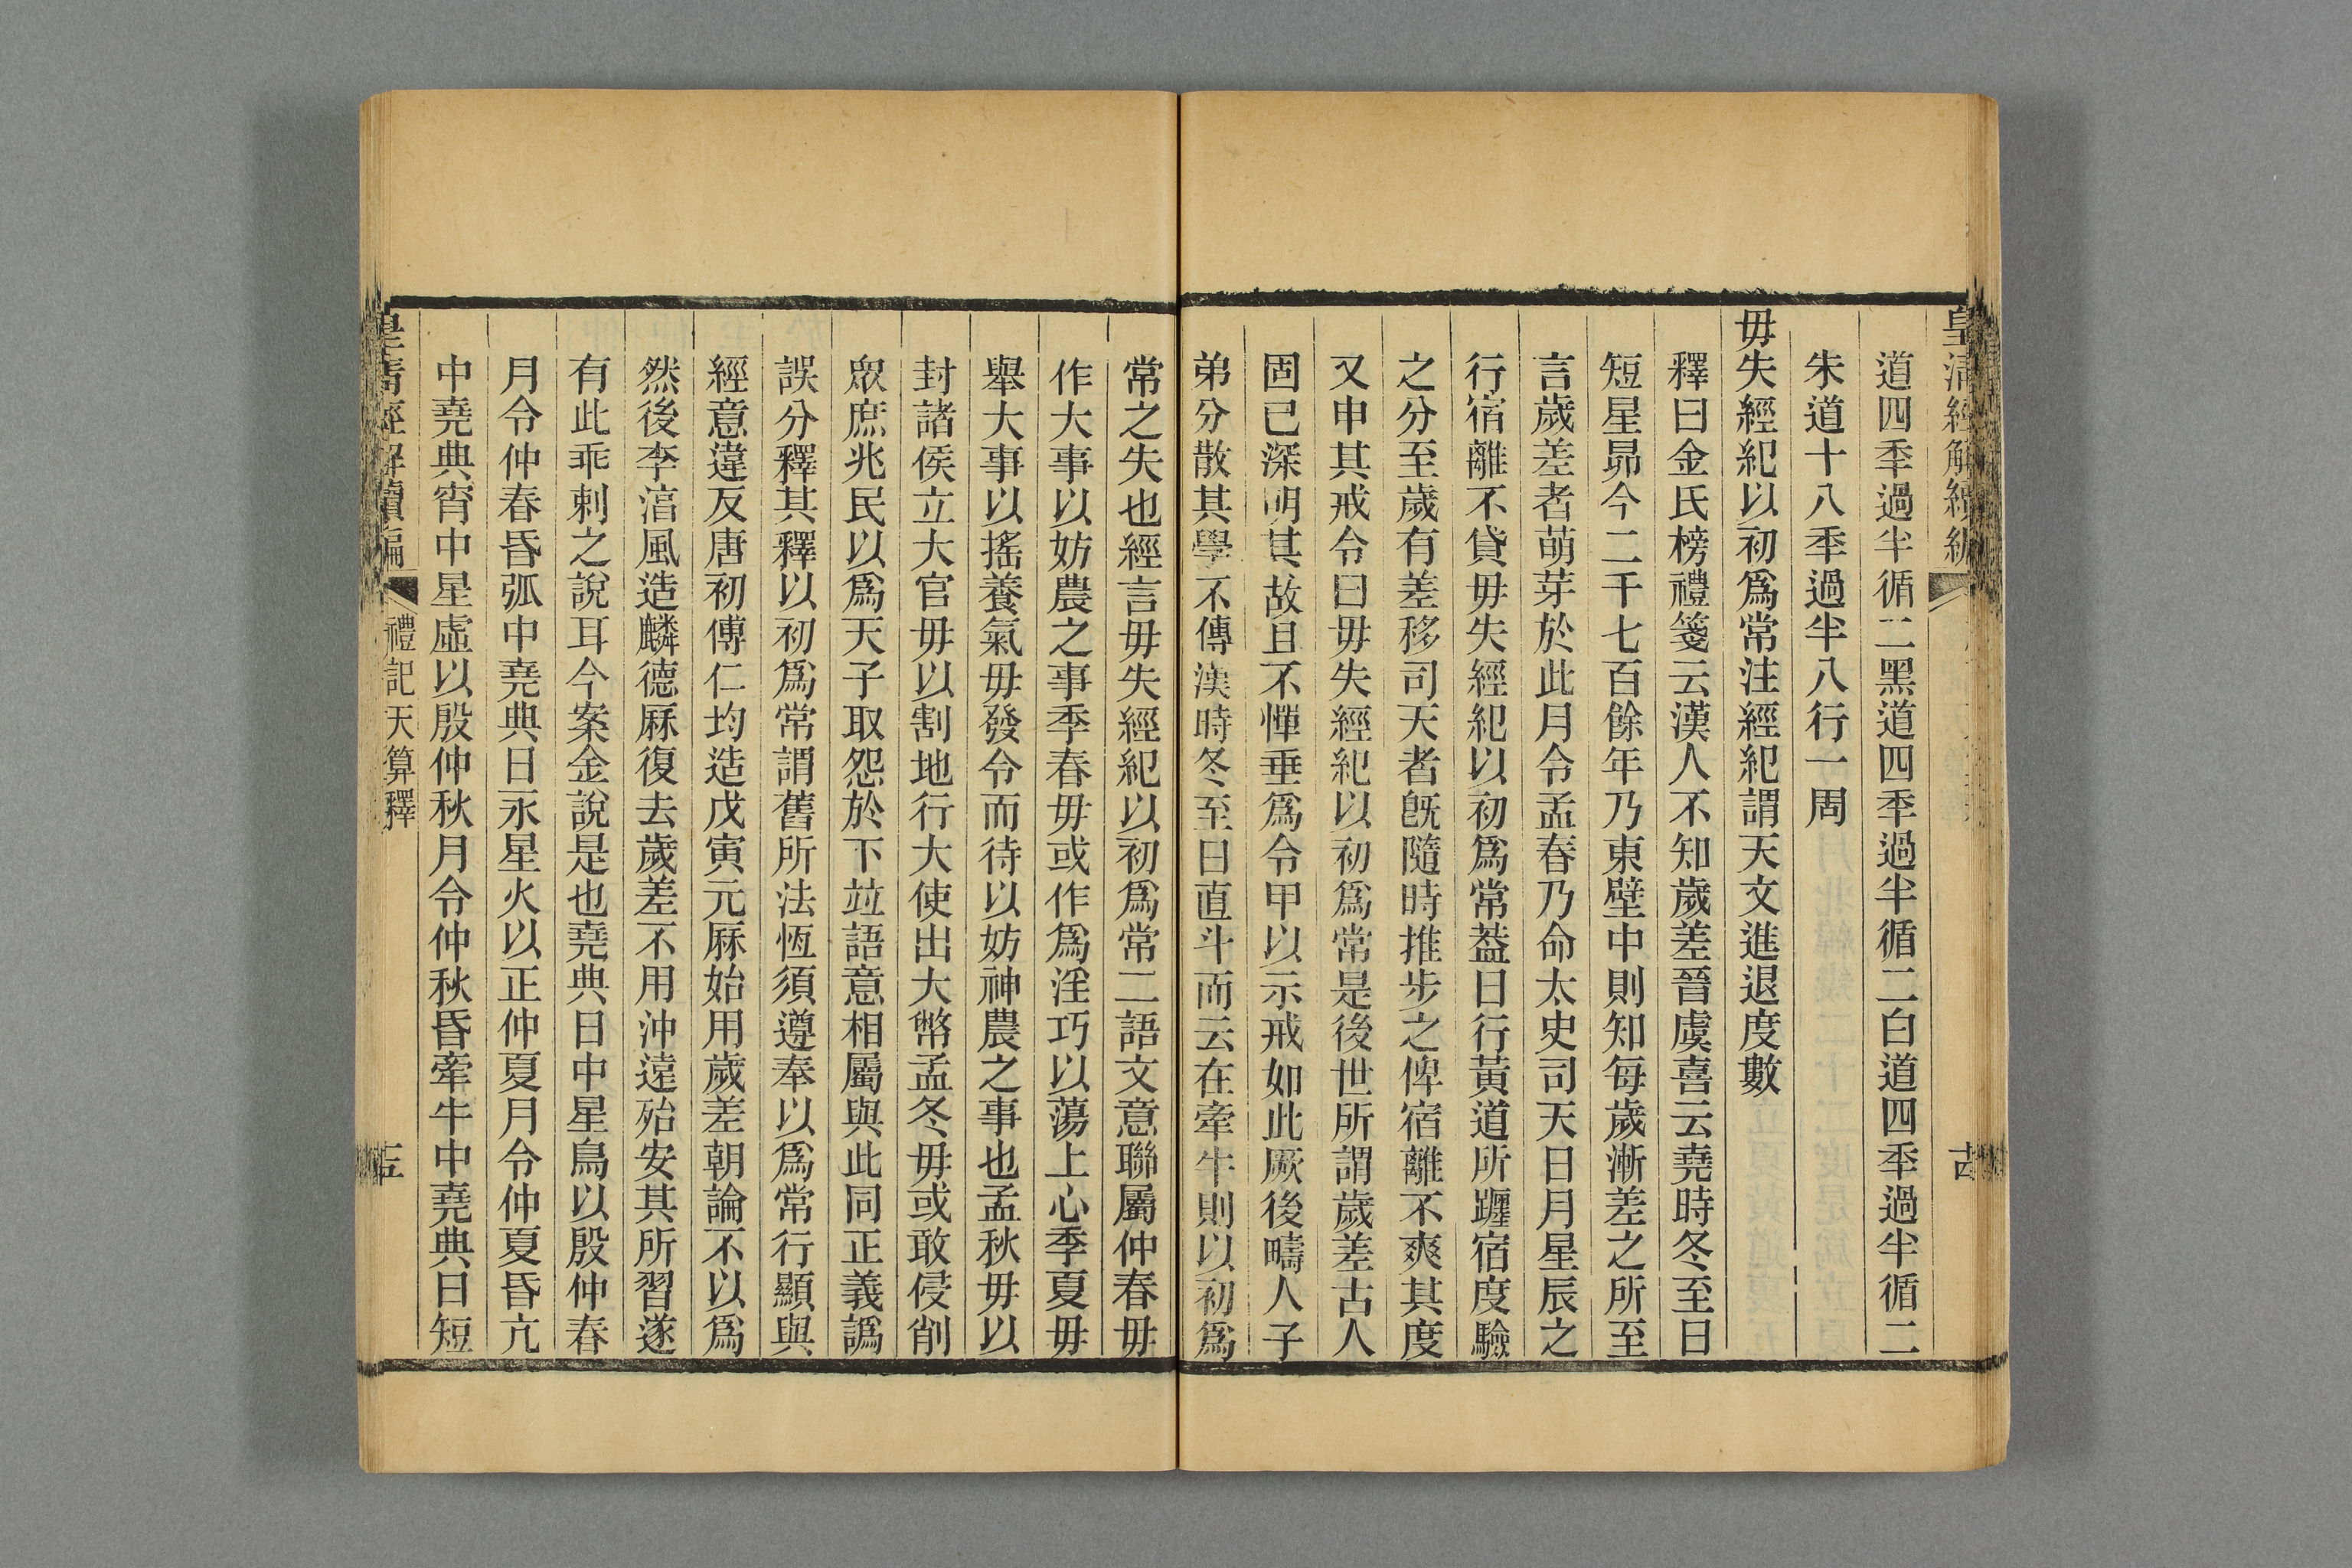 皇清經解續編
道四季過半循二黑道四季過半循二白道四季過半循二
朱道十八季過半八行一周
毋失經紀以初爲常注經紀謂天文進退度數
釋曰金氏榜禮箋云漢人不知歲差晉虞喜云堯時冬至日
短星昴今二千七百餘年乃東壁中則知每歲漸差之所至
言歲差者萌芽於此月令孟春乃命太史司天日月星辰之
行宿離不貸毋失經紀以初爲常葢日行黃道所躔宿度驗
之分至歲有差移司天者旣隨時推步之俾宿離不爽其度
又申其戒令曰毋失經紀以初爲常是後世所謂歲差古人
固已深明其故且不憚垂爲令甲以示戒如此厥後疇人子
弟分散其學不傳漢時冬至日直斗而云在牽牛則以初爲
常之失也經言毋失經紀以初爲常二語文意聯屬仲春毋
作大事以妨農之事季春毋或作爲淫巧以蕩上心季夏毋
舉大事以搖養氣毋發令而待以妨神農之事也孟秋毋以
封諸侯立大官毋以割地行大使出大幣孟冬毋或敢侵削
眾庶兆民以爲天子取怨於下竝語意相屬與此同正義譌
誤分釋其釋以初爲常謂舊所法恆須遵奉以爲常行顯與
經意違反唐初傅仁均造戊寅元厤始用歲差朝論不以爲
然後李湻風造麟德厤復去歲差不用沖遠殆安其所習遂
有此乖剌之說耳今案金說是也堯典日中星鳥以殷仲春
月令仲春昏弧中堯典日永星火以正仲夏月令仲夏昏亢
中堯典宵中星虛以殷仲秋月令仲秋昏牽牛中堯典日短
皇清經解續編
禮記天算釋